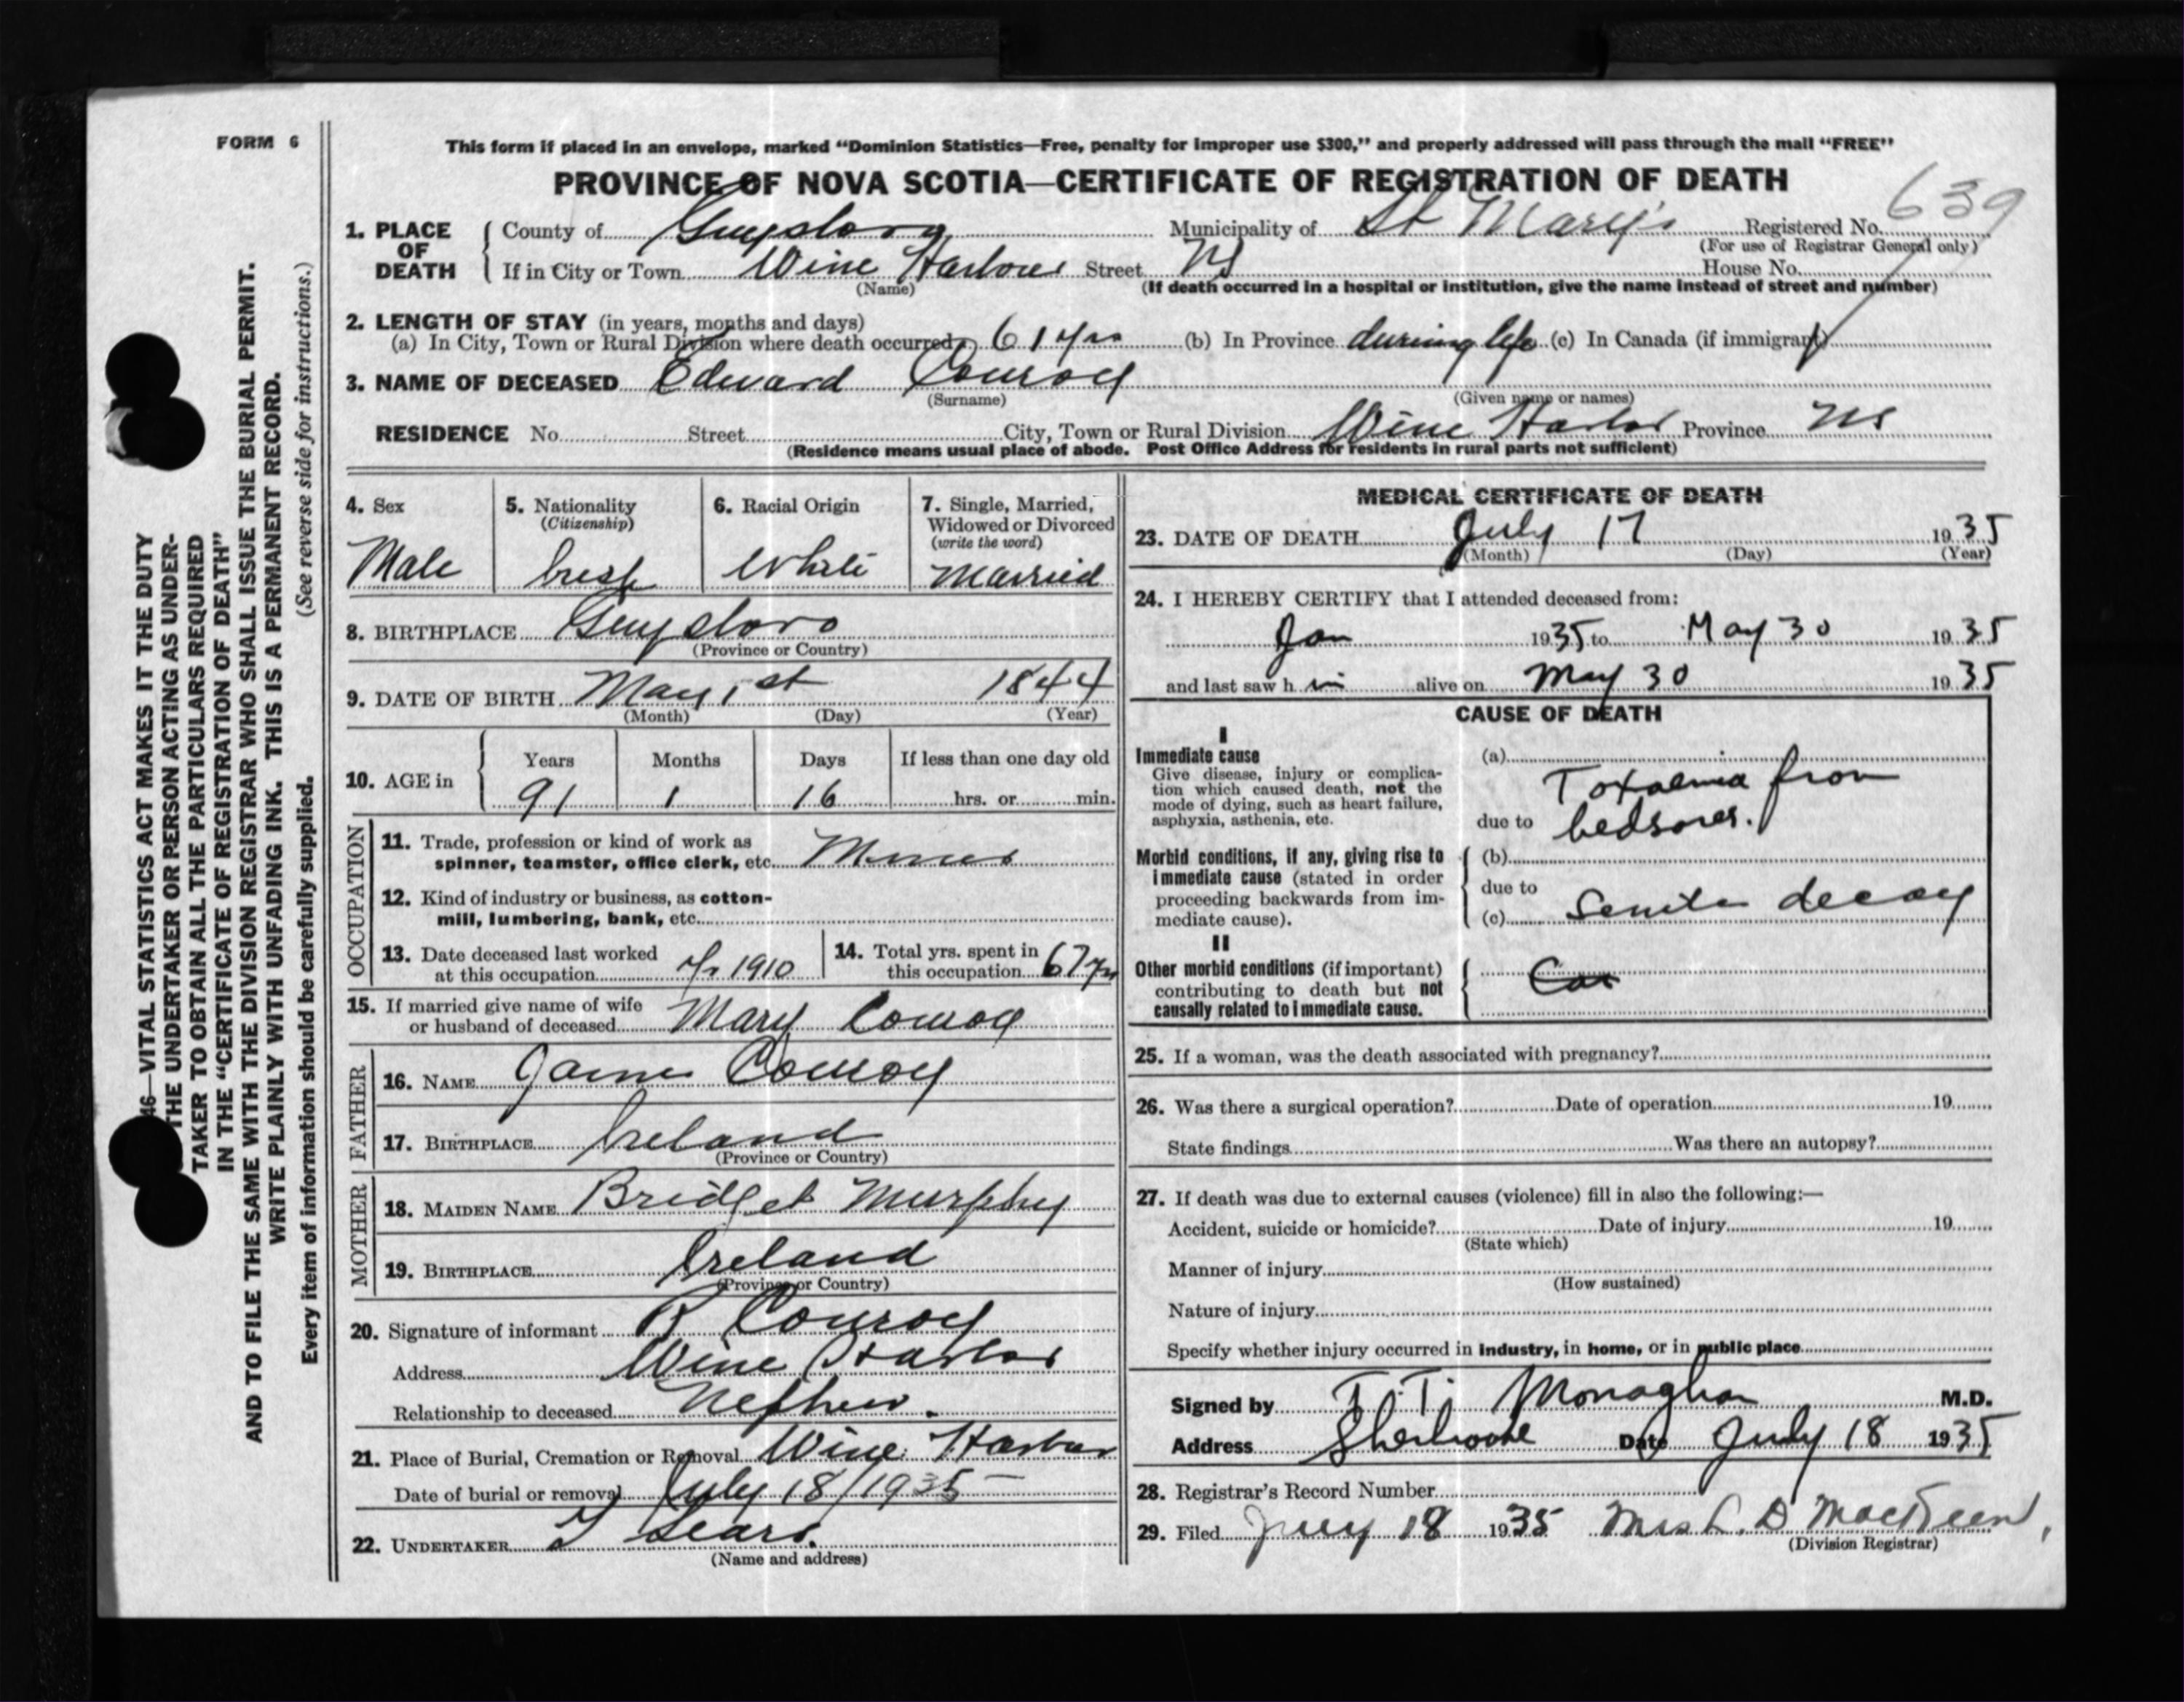 FORM 6
This form if placed in an envelope, marked "Dominion Statistics—Free, penalty for improper use $300," and properly addressed will pass through the mail "FREE"
PROVINCE OF NOVA SCOTIA—CERTIFICATE OF REGISTRATION OF DEATH
639
1. PLACE OF DEATH { County of Guysboro Municipality of St Mary's Registered No.
(For use of Registrar General only)
If in City or Town Wine Harbour Street NS House No.
(Name) (If death occurred in a hospital or institution, give the name instead of street and number)
2. LENGTH OF STAY (in years, months and days)
(a) In City, Town or Rural Division where death occurred 61 yrs (b) In Province during life (c) In Canada (if immigrant)
3. NAME OF DECEASED Edward Conroy
(Surname) (Given name or names)
RESIDENCE No. Street City, Town or Rural Division Wine Harbor Province NS
(Residence means usual place of abode. Post Office Address for residents in rural parts not sufficient)
4. Sex
Male
5. Nationality
(Citizenship)
Irish
6. Racial Origin
White
7. Single, Married, Widowed or Divorced
(write the word)
Married
8. BIRTHPLACE Guysboro
(Province or Country)
9. DATE OF BIRTH May 1st 1844
(Month) (Day) (Year)
10. AGE in { Years Months Days If less than one day old
91 1 16 hrs. or min.
OCCUPATION
11. Trade, profession or kind of work as
spinner, teamster, office clerk, etc. Miner
12. Kind of industry or business, as cotton-
mill, lumbering, bank, etc.
13. Date deceased last worked
at this occupation yr 1910
14. Total yrs. spent in
this occupation 67 yrs
15. If married give name of wife
or husband of deceased Mary Conroy
FATHER
16. NAME James Conroy
17. BIRTHPLACE Ireland
(Province or Country)
MOTHER
18. MAIDEN NAME Bridget Murphy
19. BIRTHPLACE Ireland
(Province or Country)
20. Signature of informant R Conroy
Address Wine Harbor
Relationship to deceased Nephew.
21. Place of Burial, Cremation or Removal Wine Harbor
Date of burial or removal July 18/1935
22. UNDERTAKER Sears.
(Name and address)
MEDICAL CERTIFICATE OF DEATH
23. DATE OF DEATH July 17 1935
(Month) (Day) (Year)
24. I HEREBY CERTIFY that I attended deceased from:
Jan 1935 to May 30 1935
and last saw h im alive on May 30 1935
CAUSE OF DEATH
I
Immediate cause
Give disease, injury or complica-
tion which caused death, not the
mode of dying, such as heart failure,
asphyxia, asthenia, etc.
(a) Toxaemia from
due to bedsores.
Morbid conditions, if any, giving rise to
immediate cause (stated in order
proceeding backwards from im-
mediate cause).
(b)
due to
(c) Senile decay
II
Other morbid conditions (if important)
contributing to death but not
causally related to immediate cause.
25. If a woman, was the death associated with pregnancy?
26. Was there a surgical operation? Date of operation 19
State findings Was there an autopsy?
27. If death was due to external causes (violence) fill in also the following:—
Accident, suicide or homicide? Date of injury 19
(State which)
Manner of injury
(How sustained)
Nature of injury
Specify whether injury occurred in industry, in home, or in public place
Signed by T. T. Monaghan M.D.
Address Sherbrooke Date July 18 1935
28. Registrar's Record Number
29. Filed July 18 1935 Mrs
(Division Registrar)
46—VITAL STATISTICS ACT MAKES IT THE DUTY
THE UNDERTAKER OR PERSON ACTING AS UNDER-
TAKER TO OBTAIN ALL THE PARTICULARS REQUIRED
IN THE "CERTIFICATE OF REGISTRATION OF DEATH"
AND TO FILE THE SAME WITH THE DIVISION REGISTRAR WHO SHALL ISSUE THE BURIAL PERMIT.
WRITE PLAINLY WITH UNFADING INK. THIS IS A PERMANENT RECORD.
Every item of information should be carefully supplied. (See reverse side for instructions.)